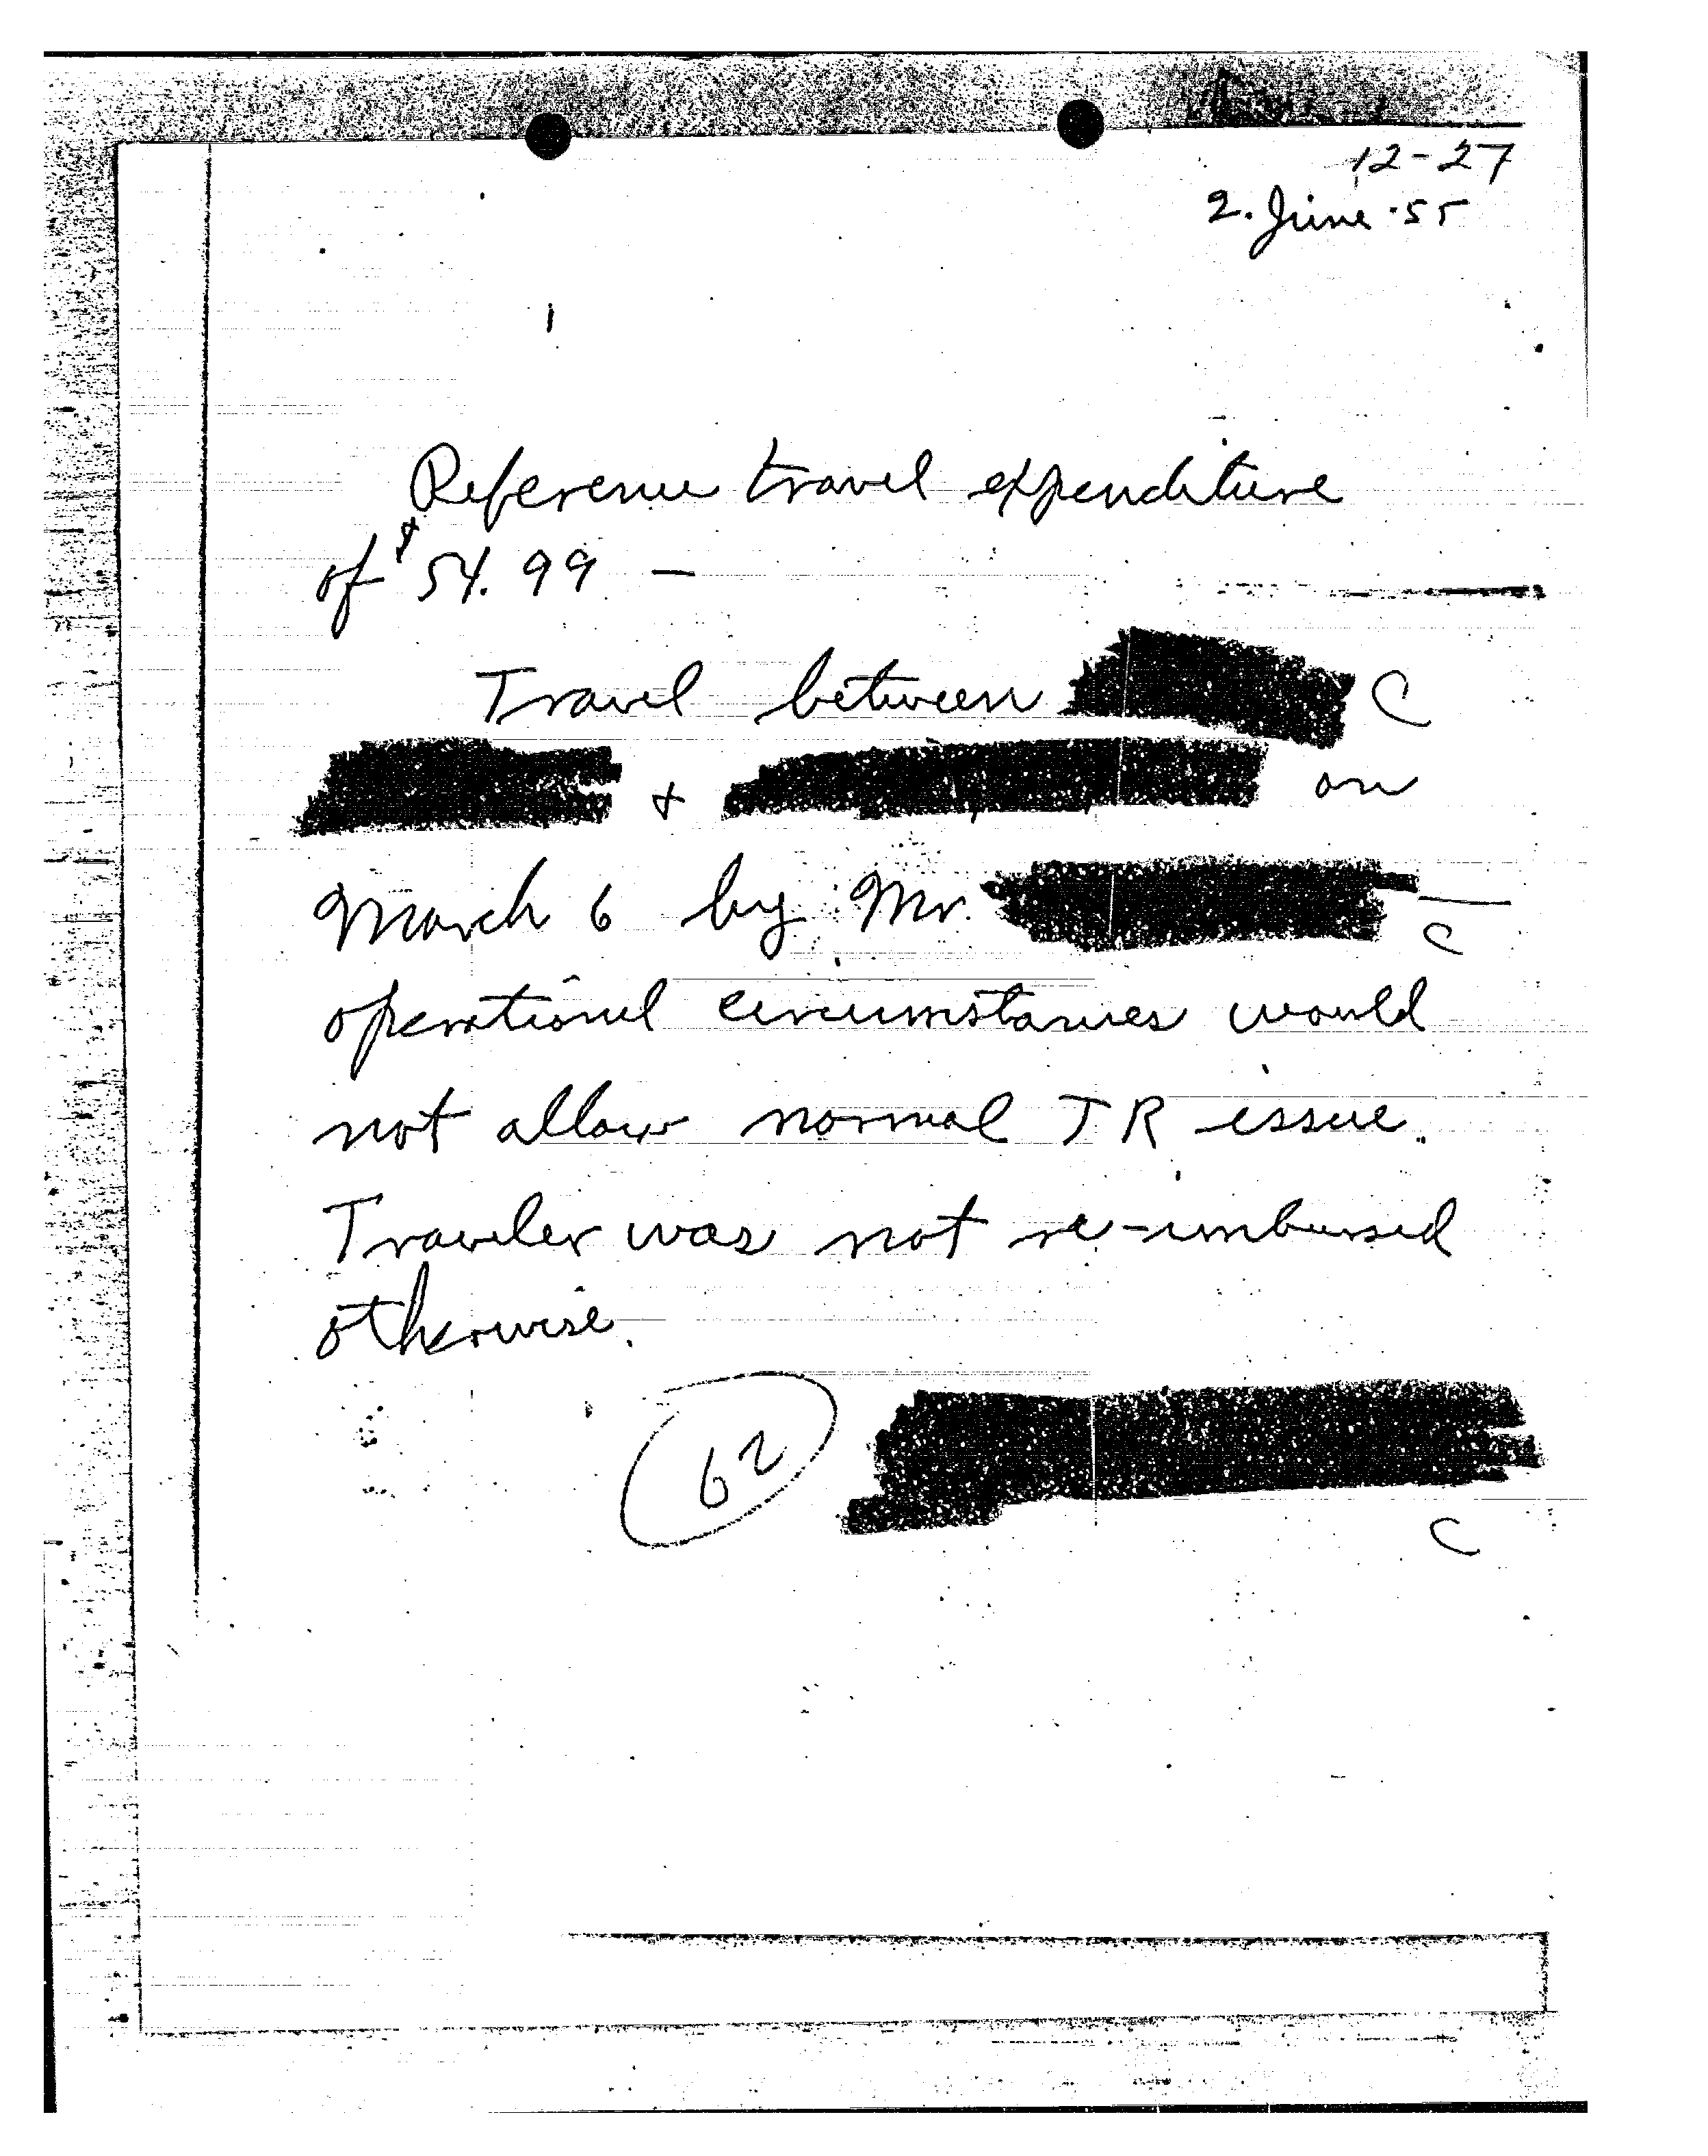 12-27
2. June .55
Reference travel expenditure
of $54.99 —
Travel between C
& on
March 6 by Mr. —
C
operational circumstances would
not allow normal TR issue.
Traveler was not re-imbursed
otherwise.
62
C